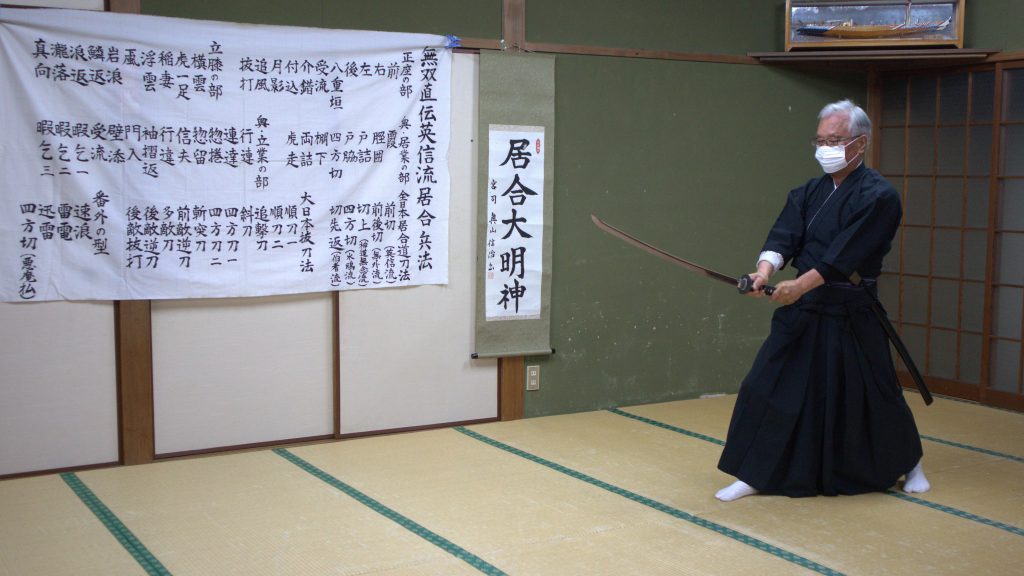 無双直伝英信流居合兵法
正座の部 奥居業の部 全日本居合道刀法
前 霞 前切(英信流)
右 脛囲 前後切(無外流)
左 戸詰 切上(神道無念流)
後 戸脇 四方切(水鴎流)
八重垣 四方切 切先返(伯耆流)
受流 棚下
介錯 両詰 大日本抜刀法
付込 虎走 順刀一
月影 順刀二
追風 奥立業の部 追撃刀
抜打 行連 斜刀
連達 四方刀一
立膝の部 惣捲 四方刀二
横雲 惣留 斬突刀
虎一足 信夫 前敵逆刀
稲妻 行違 多敵刀
浮雲 袖摺返 後敵逆刀
颪 門入 後敵抜打
岩浪 壁添
鱗返 受流 番外の型
浪返 暇乞一 速浪
瀧落 暇乞二 雷電
真向 暇乞三 迅雷
四方切(悪魔払)
居合大明神
宮司 奥山信治